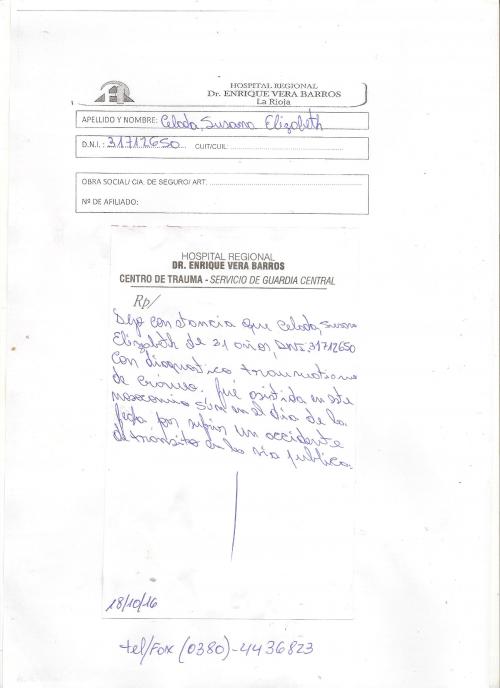 HOSPITAL REGIONAL
Dr. ENRIQUE VERA BARROS
La Rioja
APELLIDO Y NOMBRE: Celada, Susana Elizabeth
D.N.I.: 31712650 CUIT/CUIL:
OBRA SOCIAL/ CIA. DE SEGURO/ ART.
Nº DE AFILIADO:
HOSPITAL REGIONAL
DR. ENRIQUE VERA BARROS
CENTRO DE TRAUMA - SERVICIO DE GUARDIA CENTRAL
Rp/
Dejo constancia que Celada, Susana
Elizabeth de 31 años, DNI: 31712650
con diagnostico traumatismo
de cráneo. fué asistida en este
nosocomio en el día de la
fecha por sufrir un accidente
de tránsito en la vía publica.
18/10/16
tel/Fax (0380)-4436823